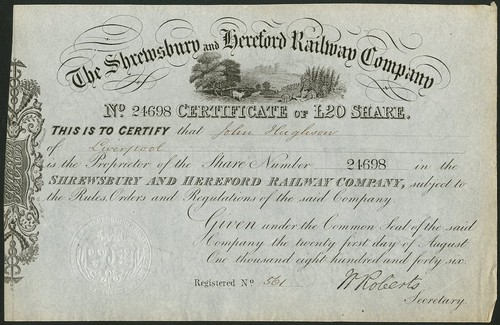 The Shrewsbury and Hereford Railway Company
No 24698 CERTIFICATE OF L20 SHARE.
THIS IS TO CERTIFY that John
of Liverpool
is the Proprietor of the Share Number 24698 in the
SHREWSBURY AND HEREFORD RAILWAY COMPANY, subject to
the Rules, Orders and Regulations of the said Company
Given under the Common Seal of the said
Company the twenty first day of August
One thousand eight hundred and forty six.
Registered No 561
W Roberts
Secretary.